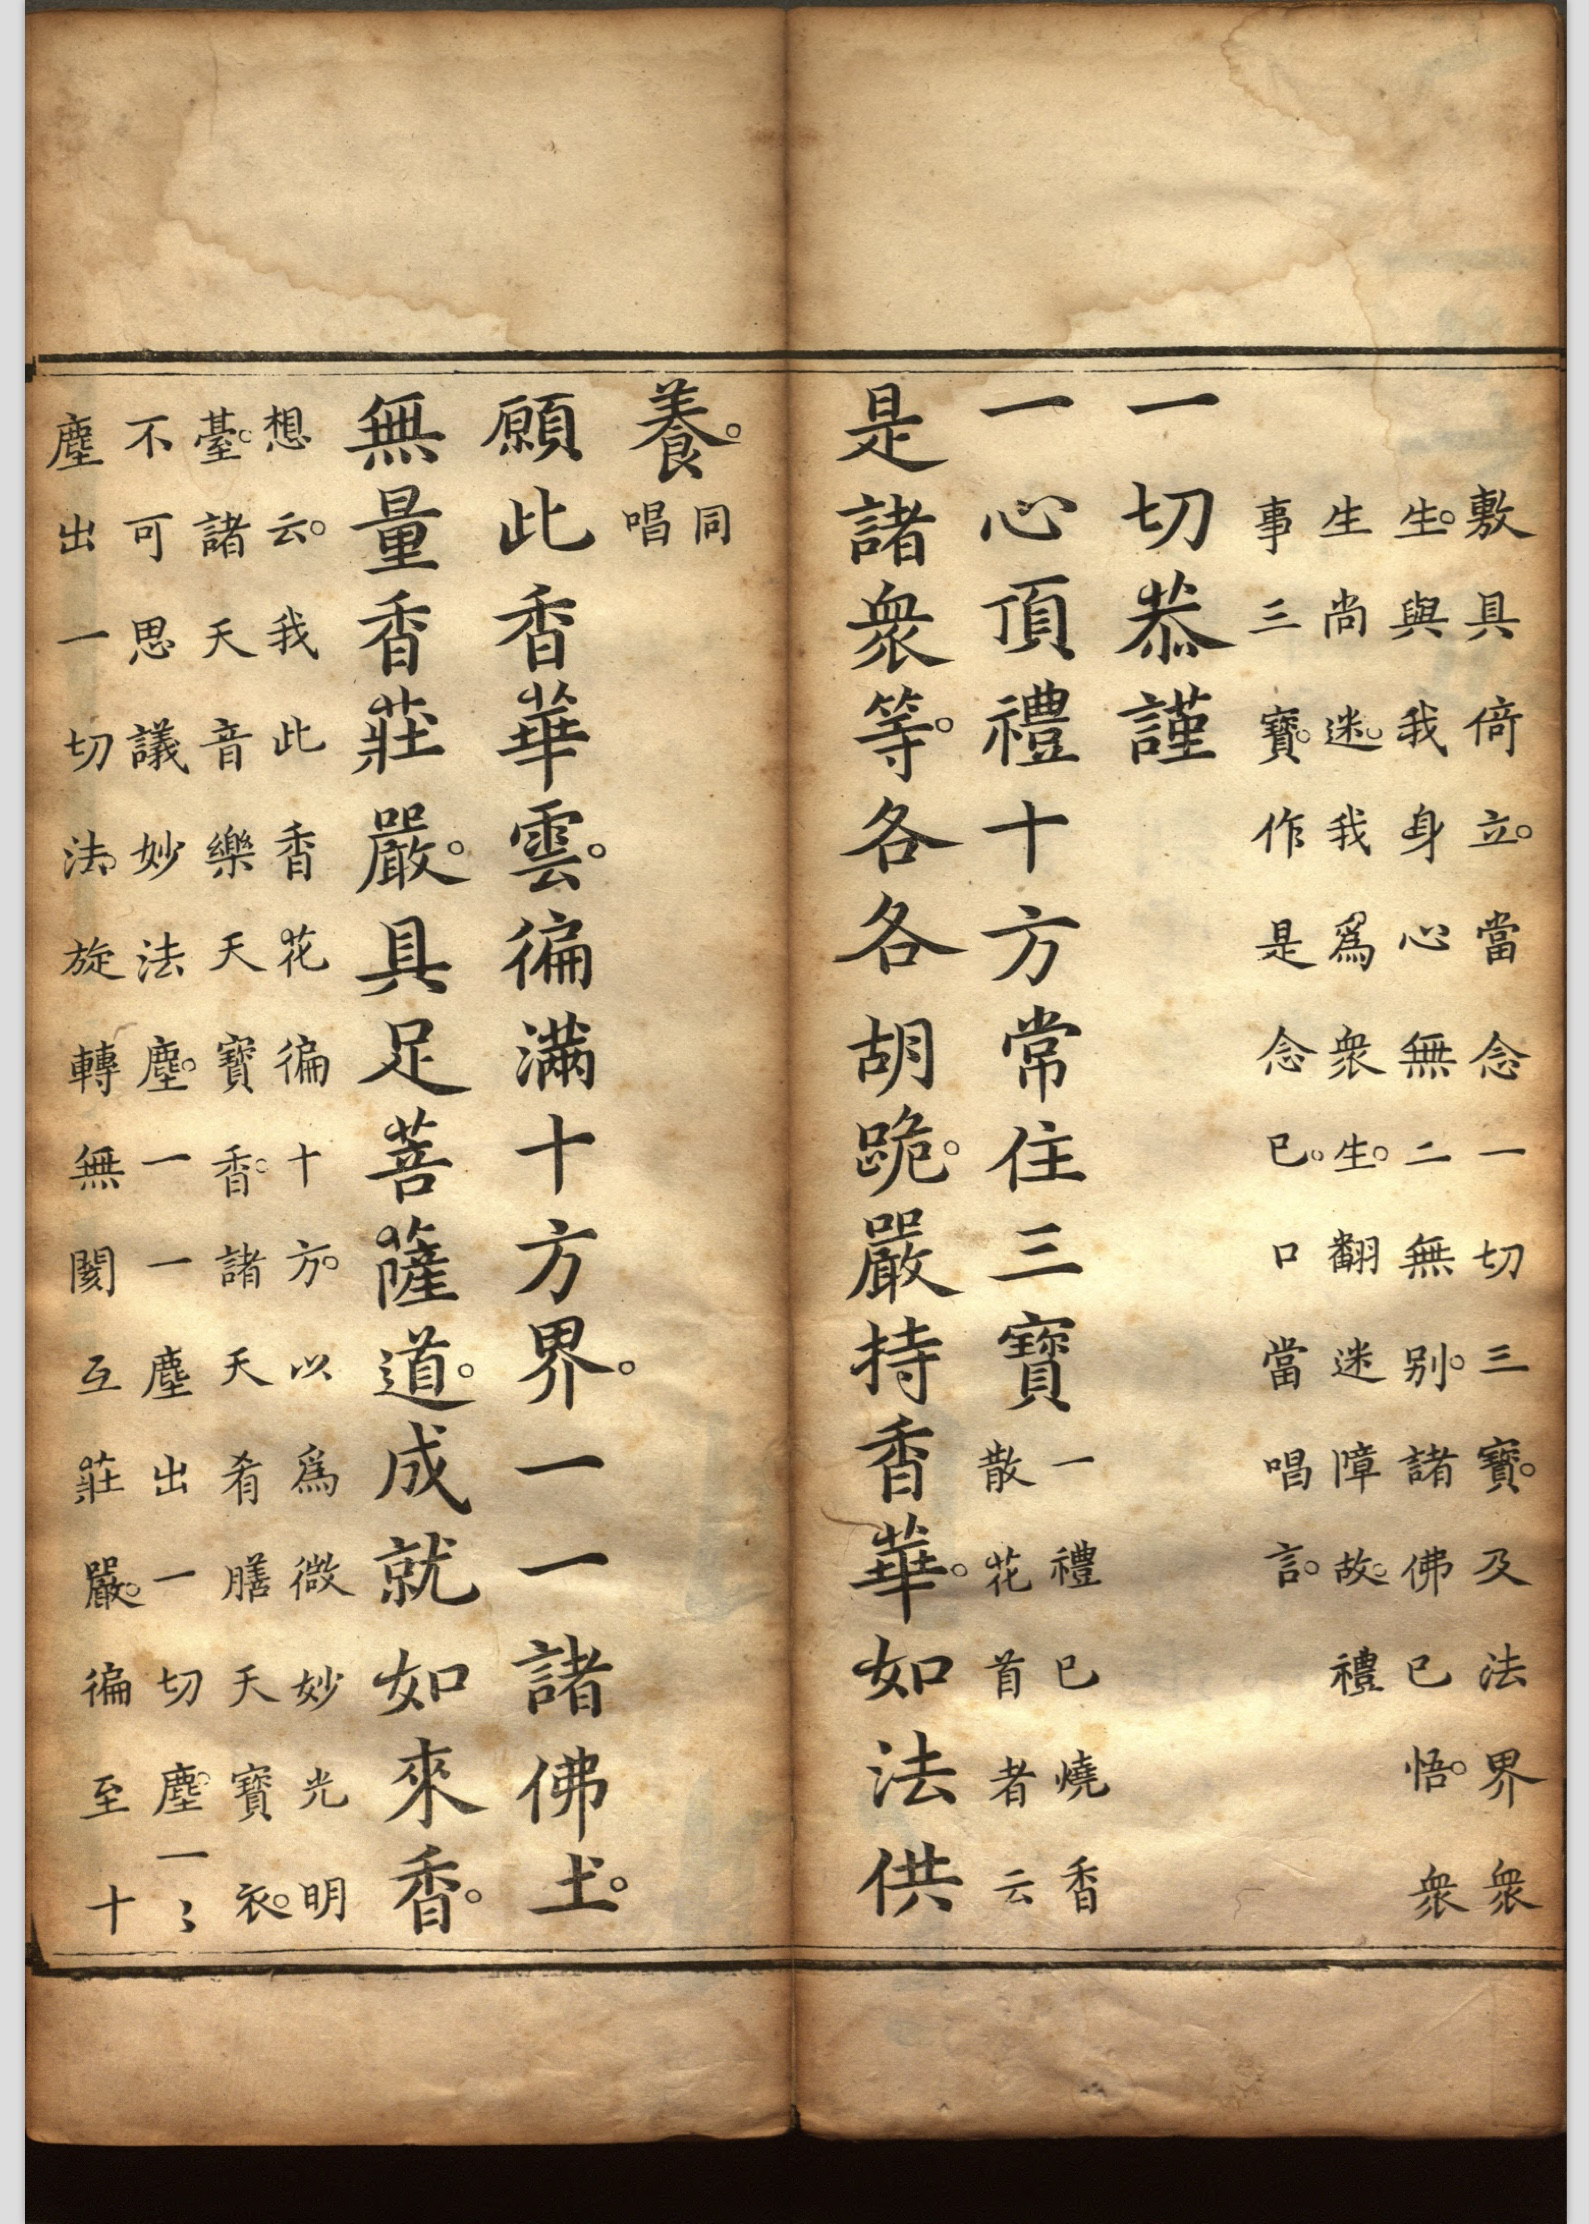 敷具倚立。當念一切三寶。及法界衆
生。與我身心無二無别。諸佛已悟。衆
生尚迷。我爲衆生。翻迷障故。禮
事三寶。作是念已。口當唱言。
一切恭謹
一心頂禮十方常住三寶
一禮已燒香
散花首者云
是諸衆等。各各胡跪。嚴持香華。如法供
養。
同
唱
願此香華雲。徧滿十方界。一一諸佛土。
無量香莊嚴。具足菩薩道。成就如來香。
想云。我此香花徧十方。以爲微妙光明
臺。諸天音樂天寶香。諸天肴膳天寶衣。
不可思議妙法塵。一一塵出一切塵。一〻
塵出一切法。旋轉無閡互莊嚴。徧至十